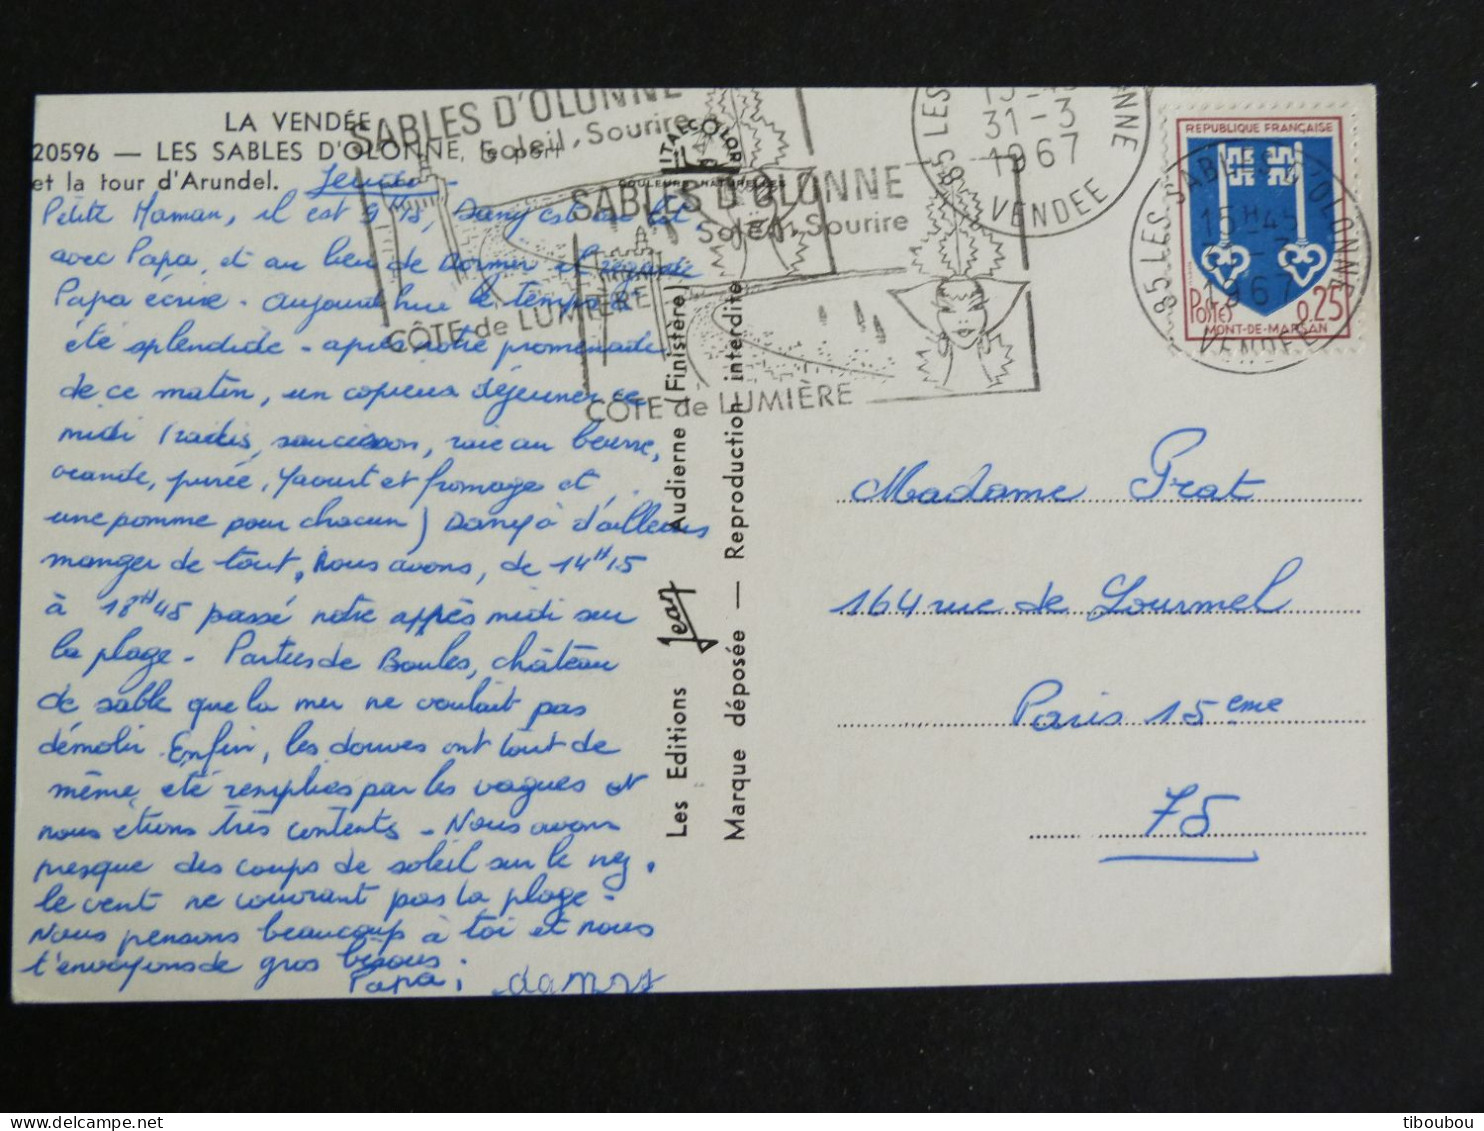 LA VENDÉE
20596 — LES SABLES D'OLONNE, le port
et la tour d'Arundel.
Jeudi -
Petite Maman, il est 9 Dany est au lit
avec Papa, et au lieu de dormir il regarde
Papa écrire - aujourd'hui le temps a
été splendide - après notre promenade
de ce matin, un copieux déjeuner ce
midi (radis, saucisson, raie au beurre,
viande, purée, Yaourt et fromages et
une pomme pour chacun) Dany à d'ailleurs
manger de tout, Nous avons, de 14H15
à 18H45 passé notre après midi sur
la plage - Parties de Boules, château
de sable que la mer ne voulait pas
démolir. Enfin, les douves ont tout de
même, été remplies par les vagues et
nous étions très contents - Nous avons
presque des coups de soleil sur le nez,
le vent ne couvrant pas la plage -
Nous pensons beaucoup à toi et nous
t'envoyons de gros bisous.
Papa, danys
Les Editions Jean Audierne (Finistère)
Marque déposée — Reproduction interdite
COULEURS NATURELLES
SABLES D'OLONNE
Soleil, Sourire
CÔTE de LUMIÈRE
SABLES D'OLONNE
Soleil, Sourire
CÔTE de LUMIÈRE
85 LES
31-3
1967
VENDEE
85 LES SABLES D'OLONNE
15H45
1967
VENDEE
REPUBLIQUE FRANÇAISE
Postes 0,25
MONT-DE-MARSAN
Madame Prat
164 rue de Lourmel
Paris 15eme
75
tiboubou